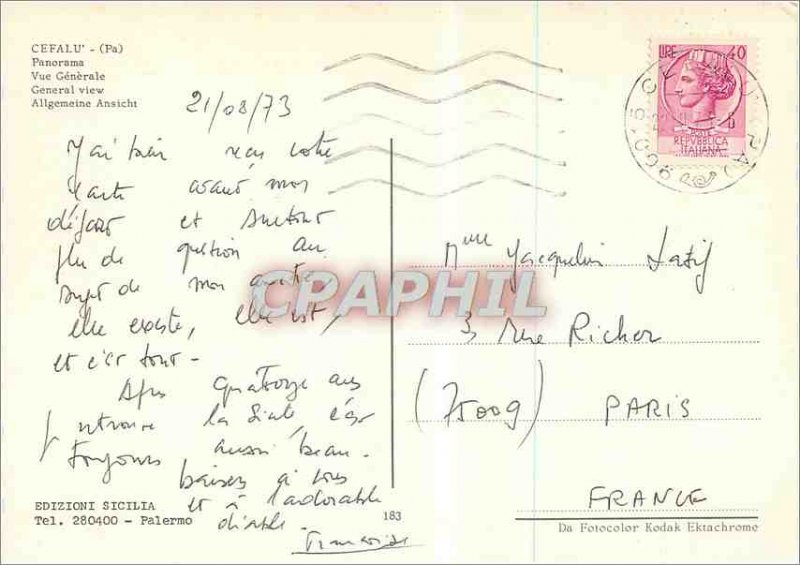 CEFALU' - (Pa)
Panorama
Vue Génèrale
General view
Allgemeine Ansicht
21/08/73
J'ai bien reçu votre
carte avant mon
départ et surtout
plu de question au
sujet de mon
elle existe, elle est,
et c'est tout -
Après quatorze ans
retrouve la Sicile, c'est
toujours aussi beau.
baisers à vous
et à l'adorable
diable.
EDIZIONI SICILIA
Tel. 280400 - Palermo
183
LIRE 40
REPVBBLICA
ITALIANA
CPAPHIL
Mme Jacqueline
3 Rue Richer
(75009) PARIS
FRANCE
Da Fotocolor Kodak Ektachrome